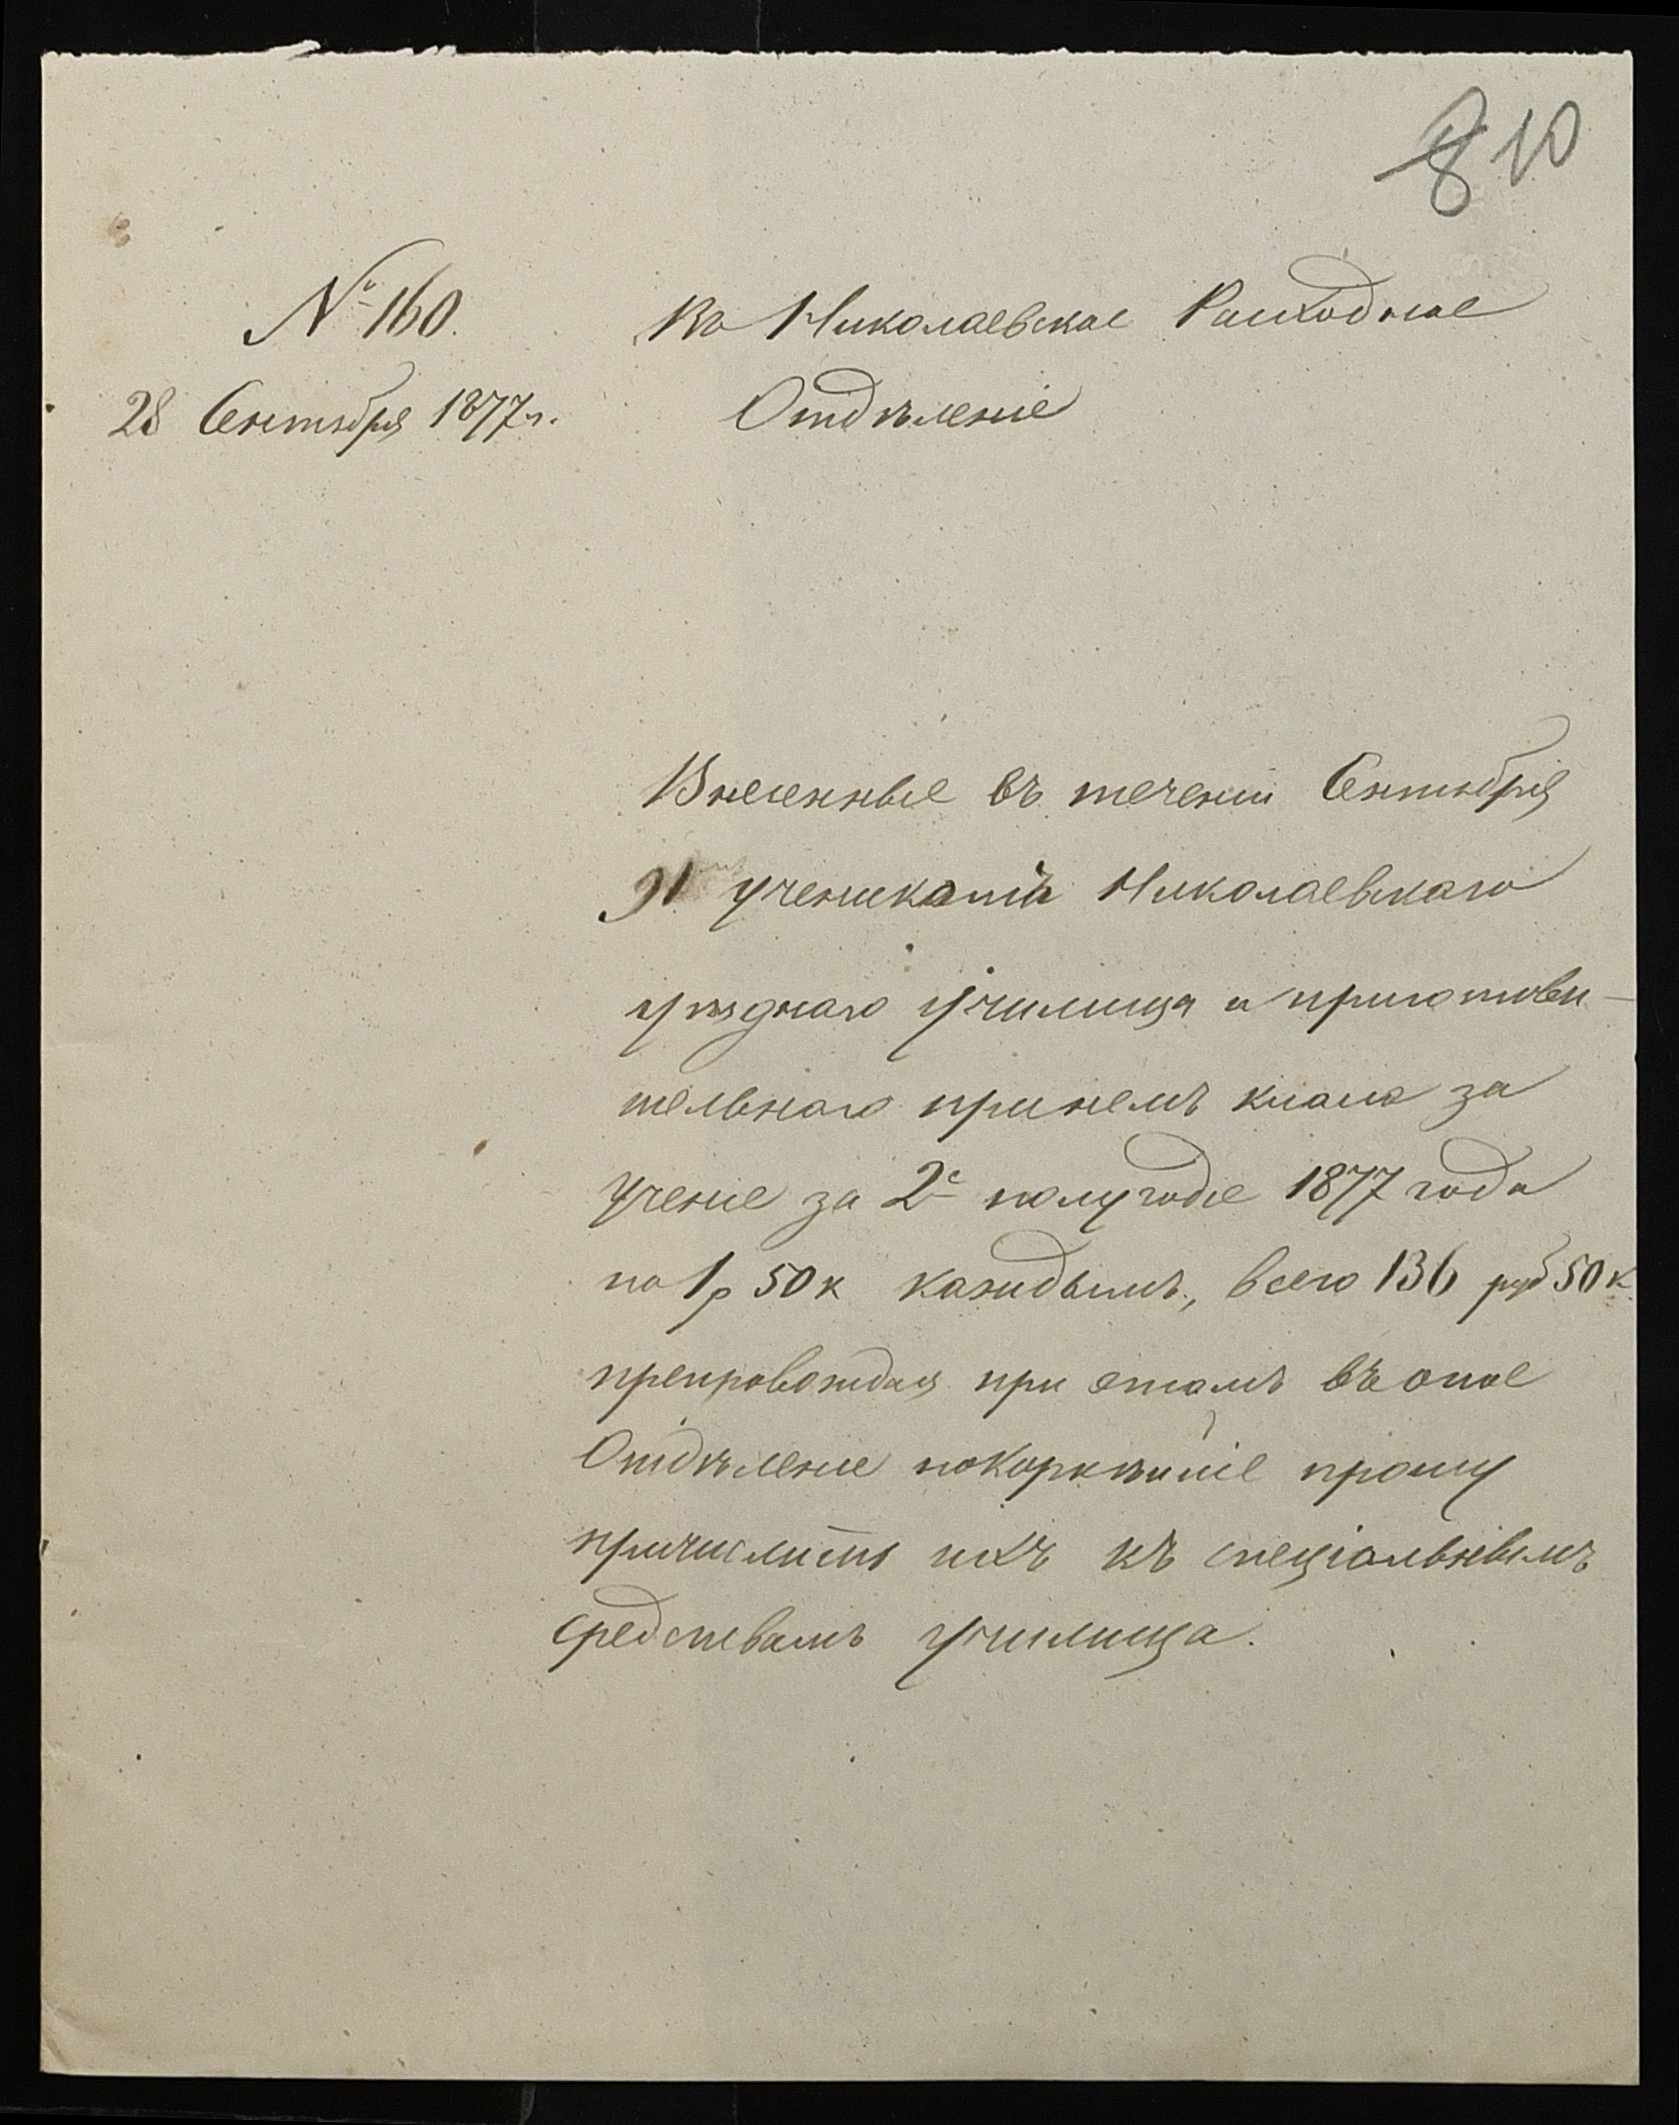 8 10
№ 160.
28 Сентября 1877 г.
Во Николаевское Расходное
Отдѣленіе
Внесенные въ теченіи Сентября
91 ученикомъ Николаевскаго
уѣзднаго училища и приготови-
тельнаго при немъ класса за
ученіе за 2е полугодіе 1877 года
по 1 р 50 к каждымъ, всего 136 руб 50 к
препровождая при этомъ въ оное
Отдѣленіе покорнѣйше прошу
причислить ихъ къ спеціальнымъ
средствамъ училища.